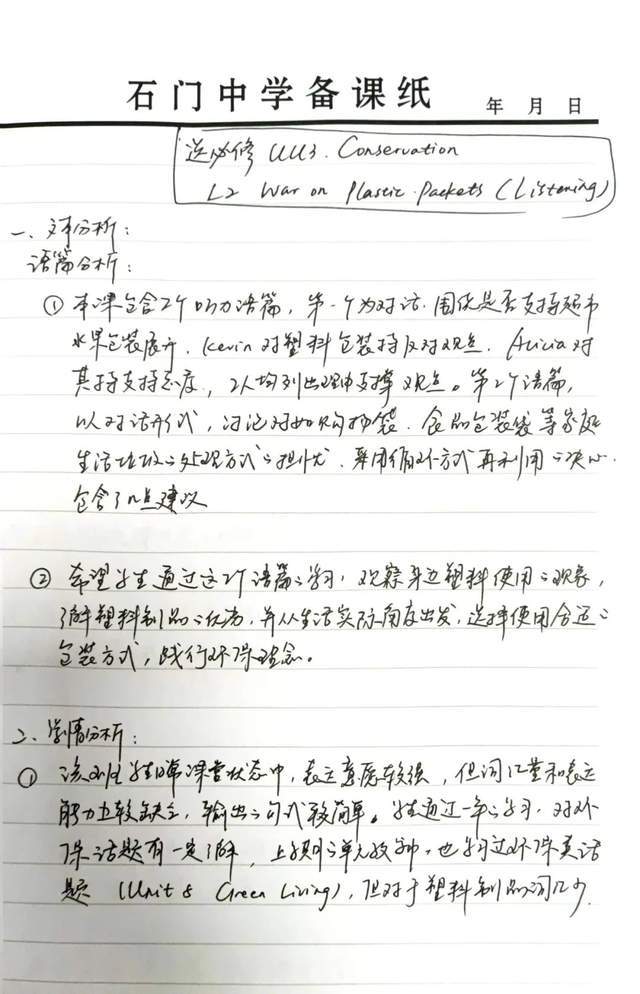 石门中学备课纸 年 月 日
选必修 UU3. Conservation
L2 War on Plastic Packets (Listening)
一、文本分析：
语篇分析：
① 本课包含2个听力语篇，第一个为对话. 围绕是否支持超市
水果包装展开. Kevin 对塑料包装持反对观点. Alicia 对
其持支持态度，2人均列出理由支撑观点。第2个语篇，
以对话形式，讨论对如购物袋. 食品包装袋等家庭
生活垃圾之处理方式之担忧. 采用循环方式再利用之决心.
包含了几点建议
② 希望学生通过这2个语篇之学习，观察身边塑料使用之现象，
了解塑料制品之优劣，并从生活实际角度出发，选择使用合适之
包装方式，践行环保理念。
二、学情分析：
① 该班学生日常课堂状态中，表达意愿较强，但词汇量和表达
能力较缺乏，输出之句式较简单。学生通过一年之学习，对环
保话题有一定了解，上学期之单元教学，也学习过环保类话
题 (Unit 8 Green Living)，但对于塑料制品词汇少.